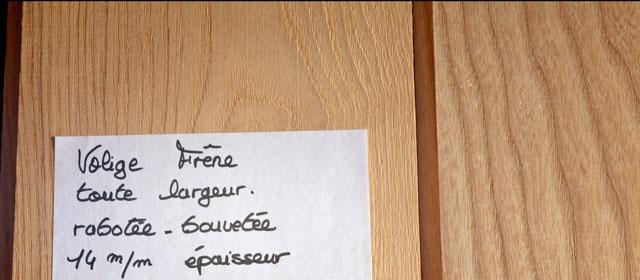 Volige Frêne
toute largeur.
rabotée - bouvetée
14 m/m épaisseur